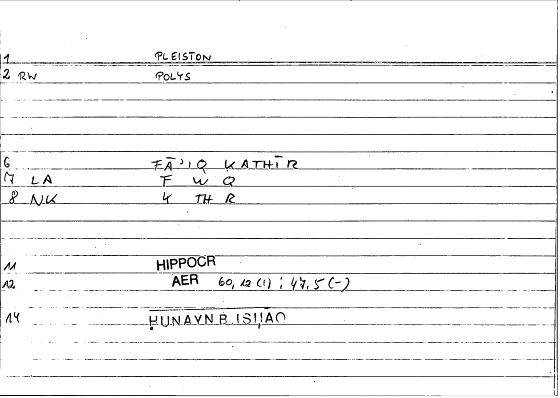 1 PLEISTON
2 RW POLYS
6 FĀʾIQ KATHĪR
7 LA F W Q
8 NK K TH R
11 HIPPOCR
12 AER 60,12 (1) ; 47,5 (-)
14 ḤUNAYN B. ISḤĀQ